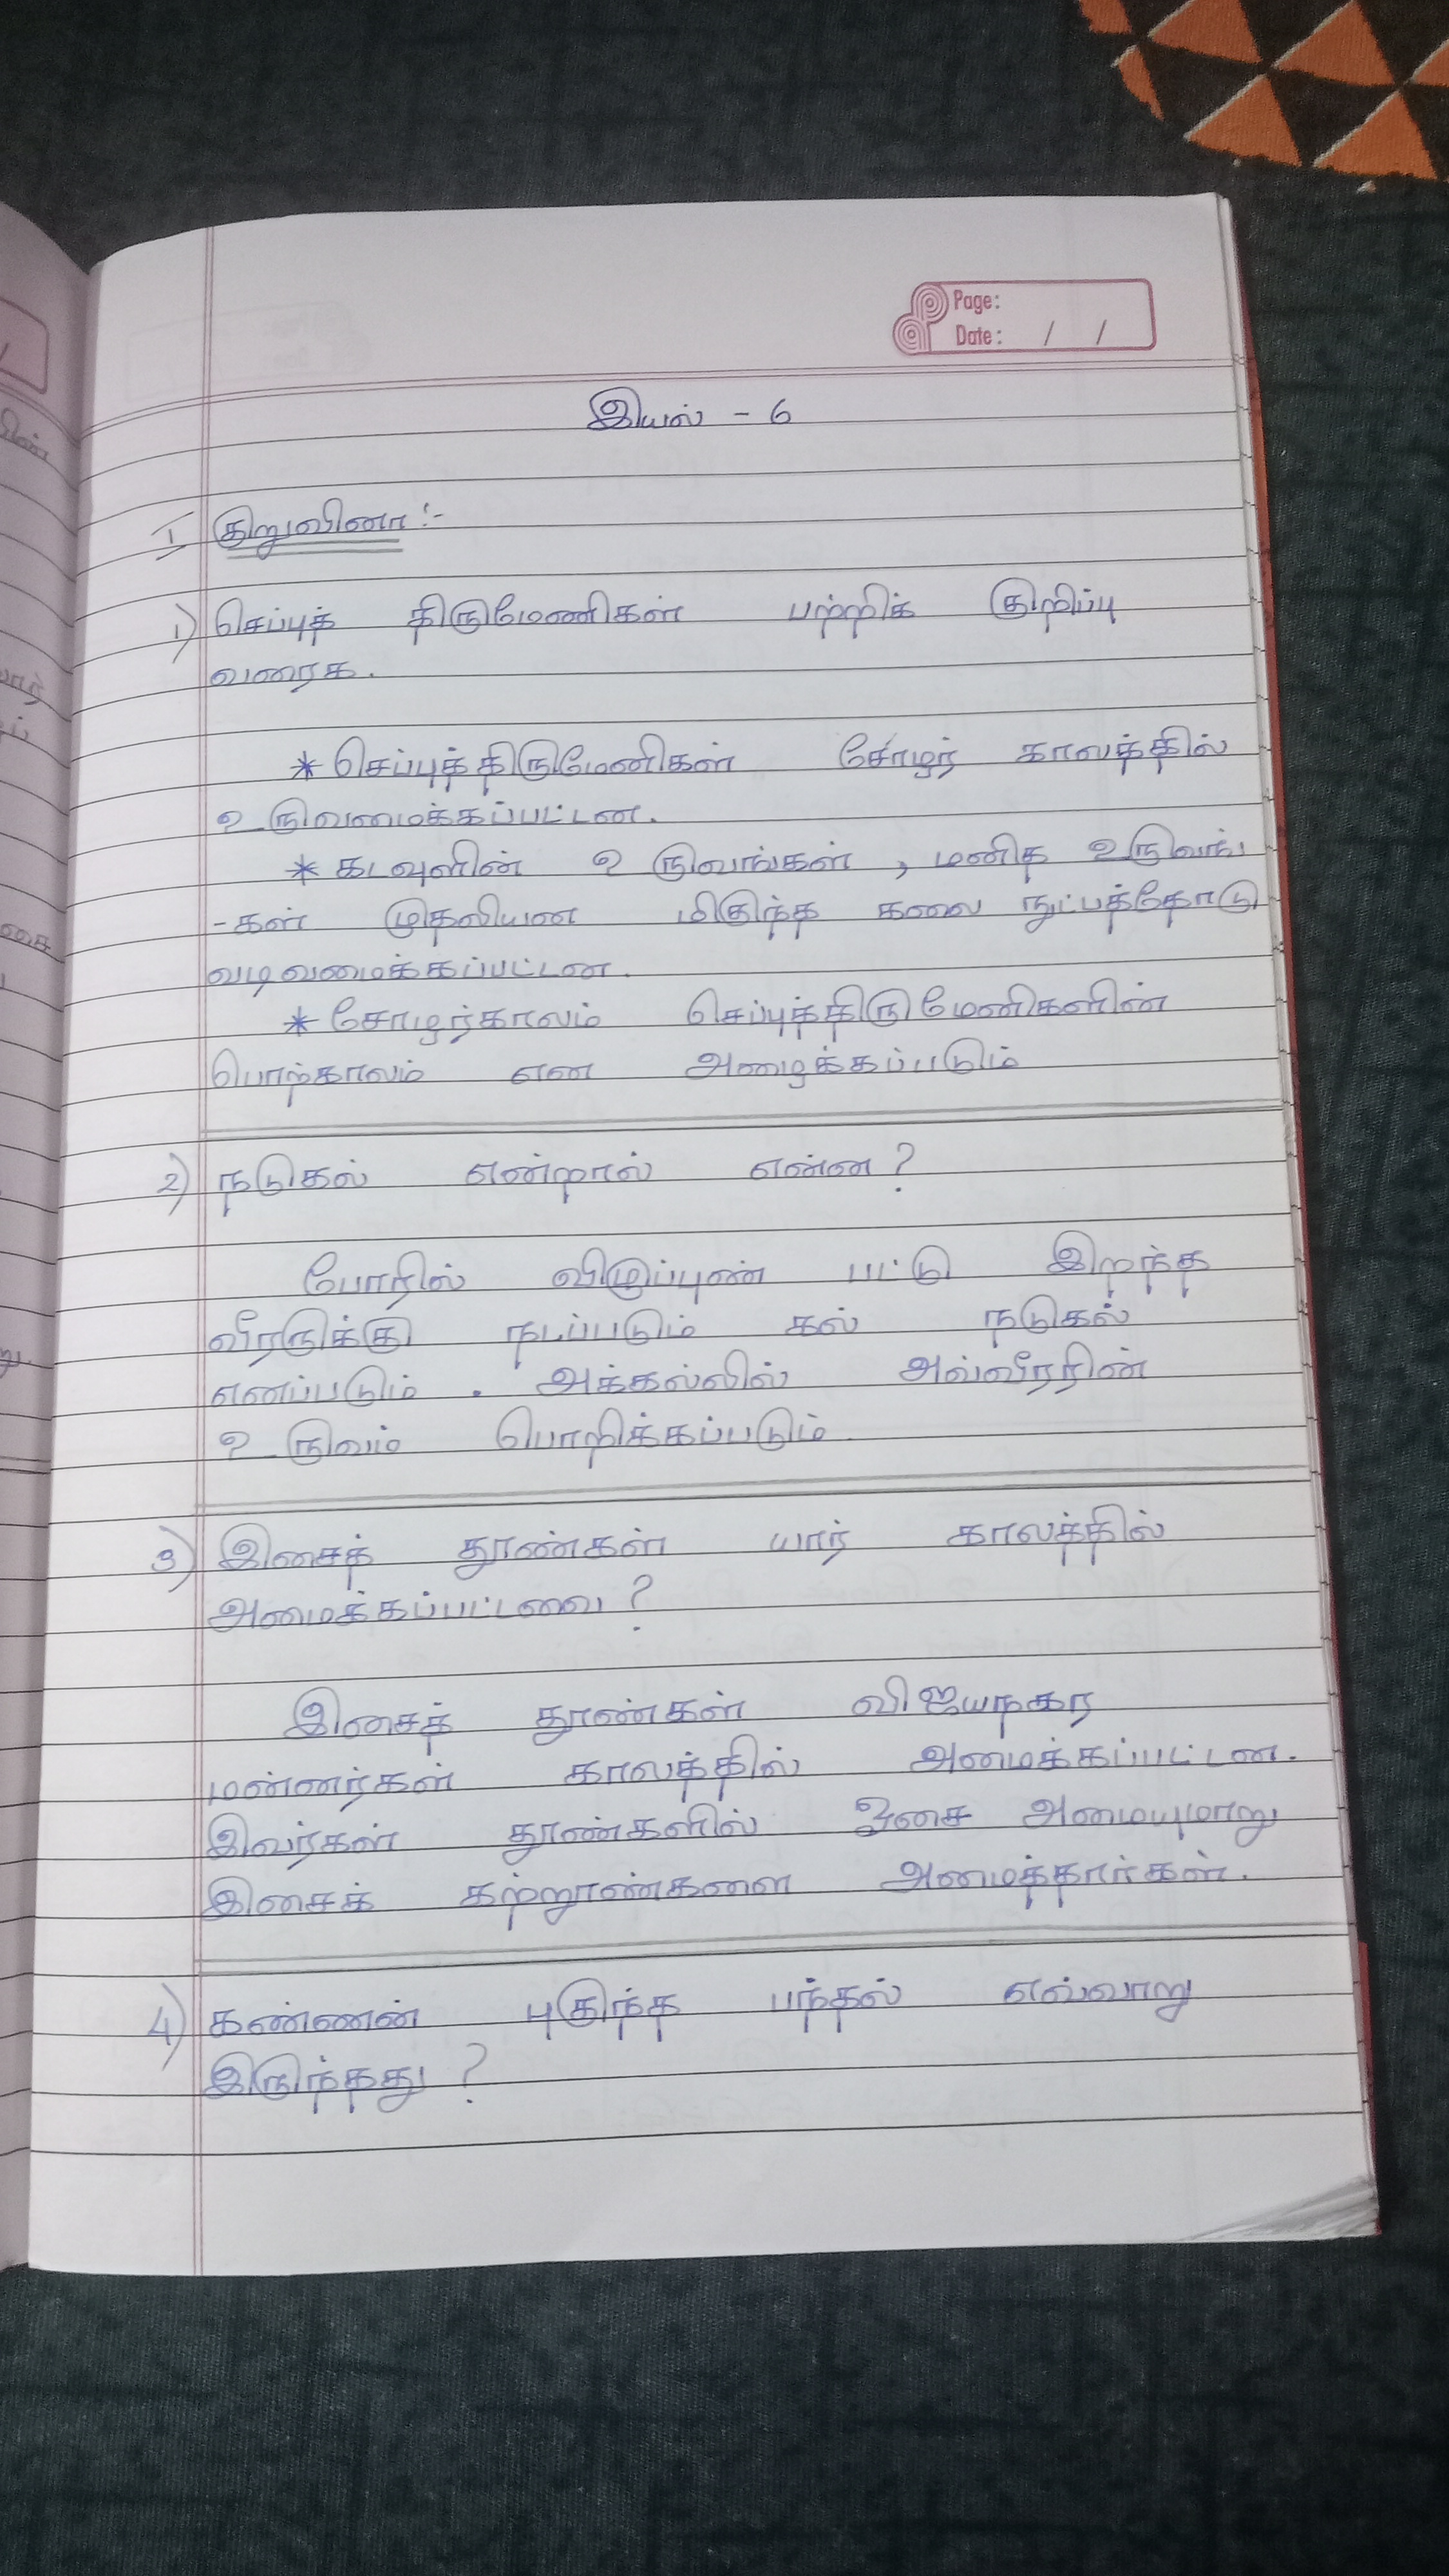 Page:
Date: / /
இயல் - 6
I குறுவினா :-
1) செப்புத் திருமேணிகள் பற்றிக் குறிப்பு
வரைக.
* செப்புத்திருமேனிகள் சோழர் காலத்தில்
உருவமைக்கப்பட்டன.
* கடவுளின் உருவங்கள் , மனித உருவங்
-கள் முதலியன மிகுந்த கலை நுட்பத்தோடு
வடிவமைக்கப்பட்டன.
* சோழர்காலம் செப்புத்திருமேனிகளின்
பொற்காலம் என அழைக்கப்படும்
2) நடுகல் என்றால் என்ன ?
போரில் விழுப்புண் பட்டு இறந்த
வீரருக்கு நடப்படும் கல் நடுகல்
எனப்படும் . அக்கல்லில் அவ்வீரரின்
உருவம் பொறிக்கப்படும்
3) இசைத் தூண்கள் யார் காலத்தில்
அமைக்கப்பட்டவை ?
இசைத் தூண்கள் விஜயநகர
மன்னர்கள் காலத்தில் அமைக்கப்பட்டன.
இவர்கள் தூண்களில் ஓசை அமையுமாறு
இசைக் கற்றூண்களை அமைத்தார்கள்.
4) கண்ணன் புகுந்த பந்தல் எவ்வாறு
இருந்தது ?